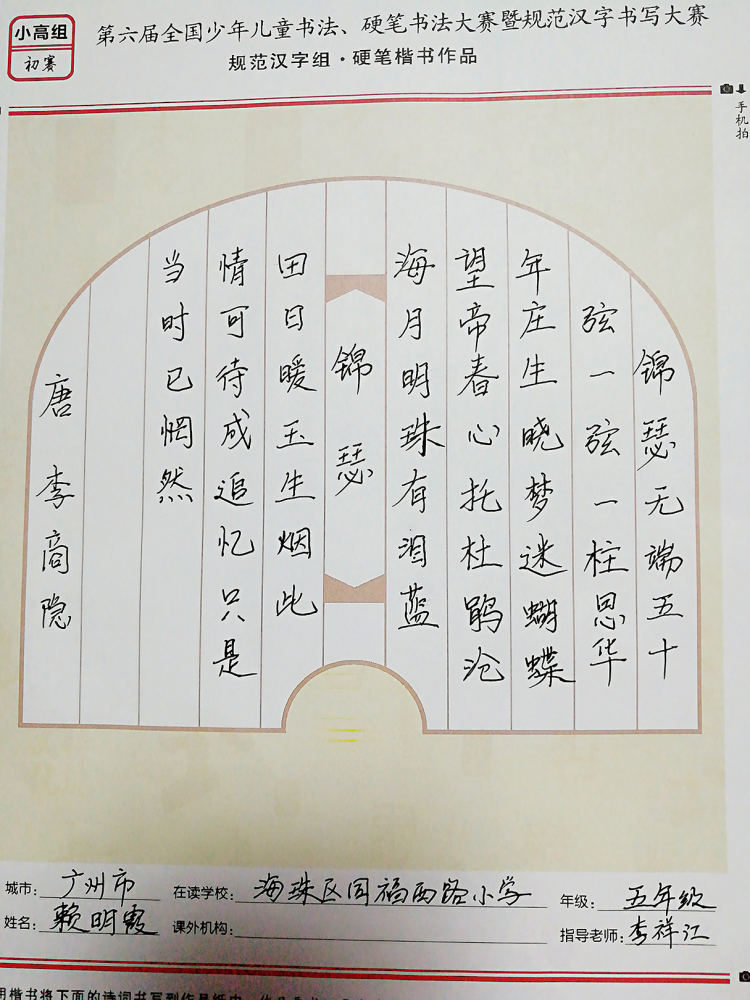 小高组
初赛
第六届全国少年儿童书法、硬笔书法大赛暨规范汉字书写大赛
规范汉字组·硬笔楷书作品
手机拍
锦瑟无端五十
弦一弦一柱思华
年庄生晓梦迷蝴蝶
望帝春心托杜鹃沧
海月明珠有泪蓝
锦瑟
田日暖玉生烟此
情可待成追忆只是
当时已惘然
唐李商隐
城市：广州市 在读学校：海珠区同福西路小学 年级：五年级
姓名：赖明霞 课外机构： 指导老师：李祥江
用楷书将下面的诗词书写到作品纸中